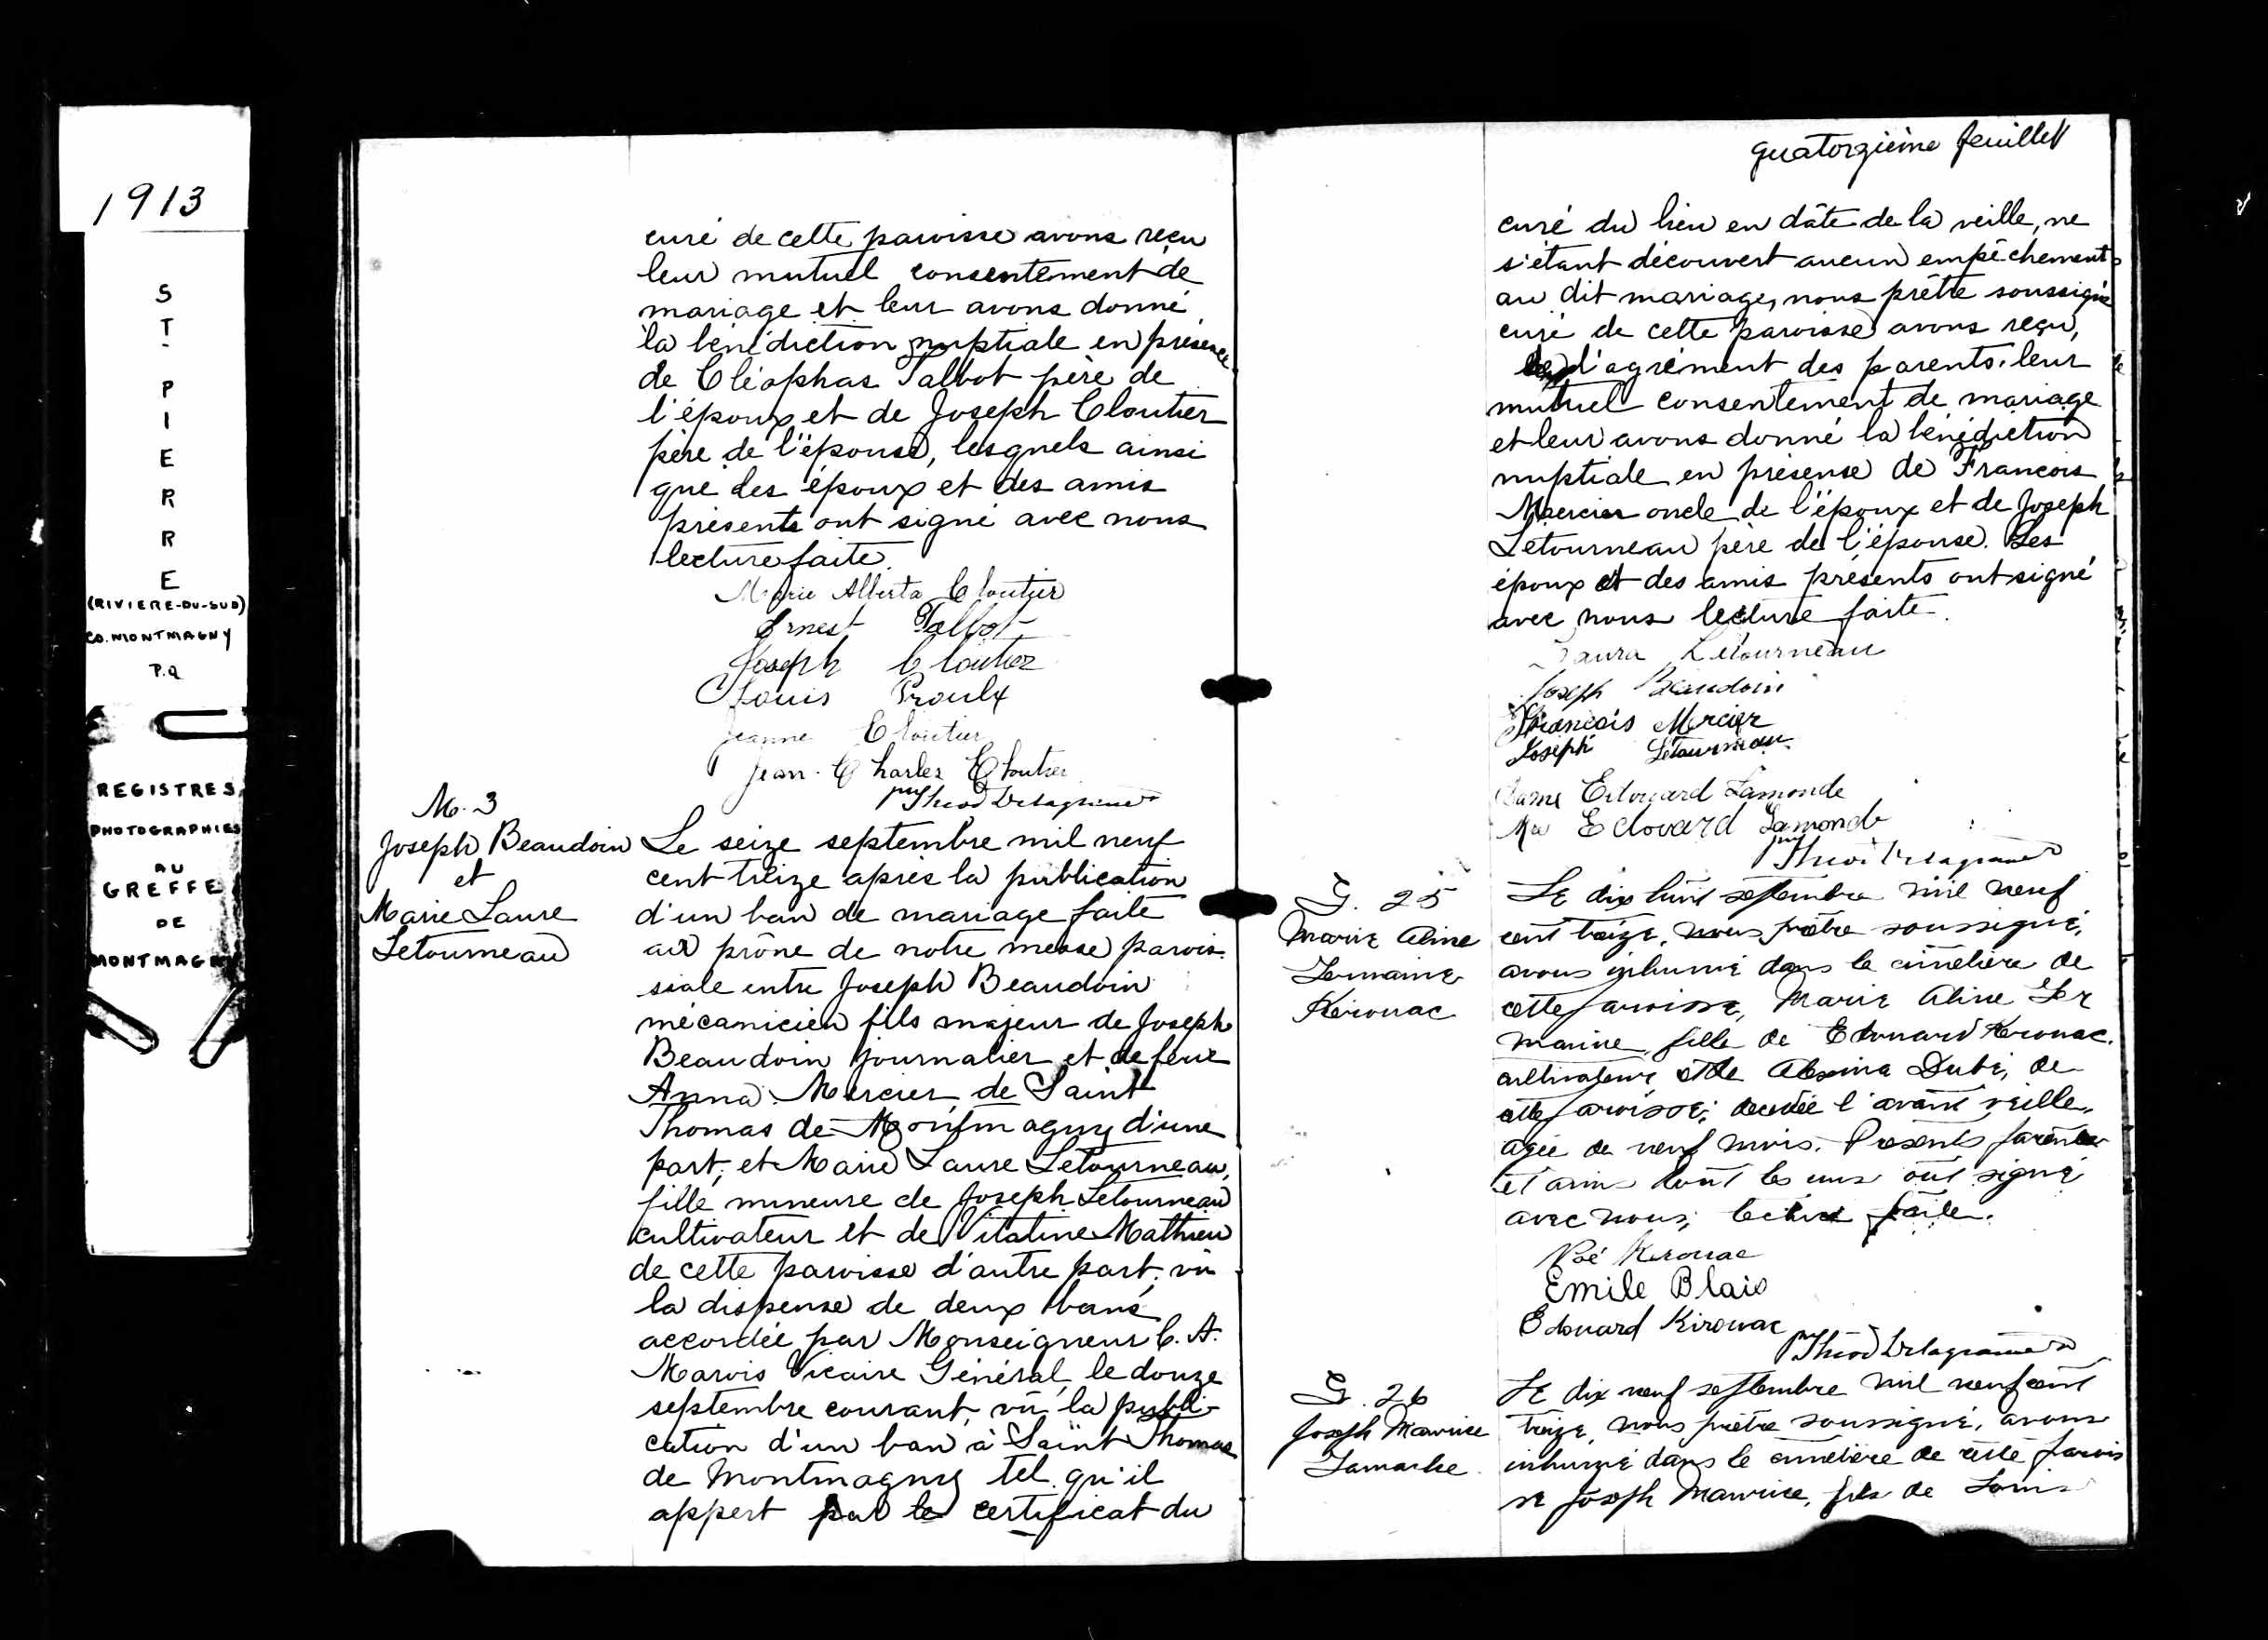 1913
ST PIERRE
(RIVIERE-DU-SUD)
CO. MONTMAGNY
P.Q
REGISTRES
PHOTOGRAPHIES
AU
GREFFE
DE
MONTMAGNY
curé de cette paroisse avons reçu
leur mutuel consentement de
mariage et leur avons donné
la bénédiction nuptiale en présence
de Cléophas Talbot père de
l'époux et de Joseph Cloutier
père de l'épouse, lesquels ainsi
que les époux et des amis
présents ont signé avec nous
lecture faite.
Marie Alberta Cloutier
Ernest Talbot
Joseph Cloutier
Louis Proulx
Jeanne Cloutier
Jean-Charles Cloutier
M. 3
Joseph Beaudoin
et
Marie Laure
Letourneau
Le seize septembre mil neuf
cent treize après la publication
d'un ban de mariage faite
au prône de notre messe parois-
siale entre Joseph Beaudoin
mécanicien fils majeur de Joseph
Beaudoin journalier et de feue
Anna Mercier de Saint
Thomas de Montmagny d'une
part, et Marie Laure Letourneau,
fille mineure de Joseph Letourneau
cultivateur et de Vitaline Mathieu
de cette paroisse d'autre part, vu
la dispense de deux bans
accordée par Monseigneur C. A.
Marois Vicaire Général, le douze
septembre courant, vû la publi-
cation d'un ban à Saint Thomas
de Montmagny tel qu'il
appert par le certificat du
quatorzième feuillet
curé du lieu en dâte de la veille, ne
s'étant découvert aucun empêchement
au dit mariage, nous prêtre soussigné
curé de cette paroisse avons reçu,
d'agrément des parents, leur
mutuel consentement de mariage
et leur avons donné la bénédiction
nuptiale en présense de Francois
Mercier oncle de l'époux et de Joseph
Létourneau père de l'épouse. Les
époux et des amis présents ont signé
avec nous lecture faite.
Laura Létourneau
Joseph Beaudoin
François Mercier
Joseph Letourneau
Dame Edouard Lamonde
Mr Edouard Lamonde
S. 25
Marie Aline
Germaine
Kérouac
Le dix huit septembre mil neuf
cent treize, nous prêtre soussigné,
avons inhumé dans le cimetière de
cette paroisse, Marie Aline Ger
maine, fille de Edouard Kerouac.
cultivateur, et de Alexina Dubé, de
cette paroisse; décédée l'avant veille,
agée de neuf mois. Présents parents
et amis dont les uns ont signé
avec nous, lecture faite.
Noé Kerouac
Emile Blais
Edouard Kirouac
S. 26
Joseph Maurice
Lamarke
Le dix neuf septembre mil neuf cent
treize, nous prêtre soussigné, avons
inhumé dans le cimetière de cette parois
se Joseph Maurice, fils de Louis